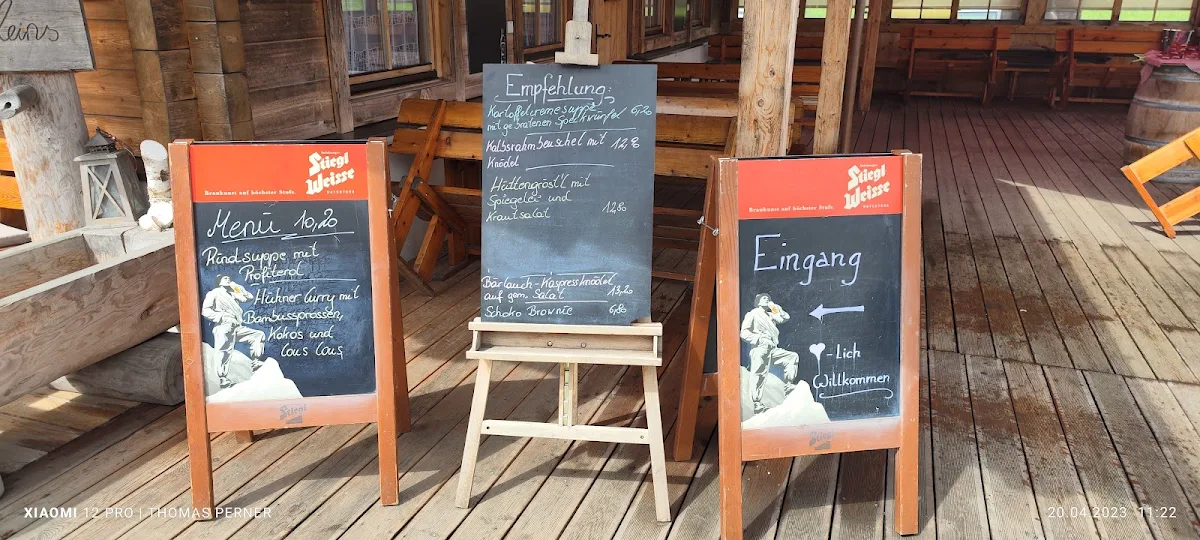 leins
Stiegl
Weisse
Braukunst auf höchster Stufe.
Menü 10,20
Rindsuppe mit
Profiterol
Hühner Curry mit
Bambussprossen,
Kokos und
Cous Cous
Stiegl
Empfehlung:
Kartoffelcremesuppe 6,20
mit gebratenen Speckwürfel
Kalbsrahmbeuschel mit 12,80
Knödel
Hüttengröst'l mit
Spiegelei und
Krautsalat 12,80
Bärlauch-Kaspressknödel
auf gem. Salat 13,20
Schoko Brownie 6,80
Stiegl
Weisse
Braukunst auf höchster Stufe.
Eingang
←
♥-Lich
Willkommen
Stiegl
XIAOMI 12 PRO | THOMAS PERNER
20.04.2023 11:22